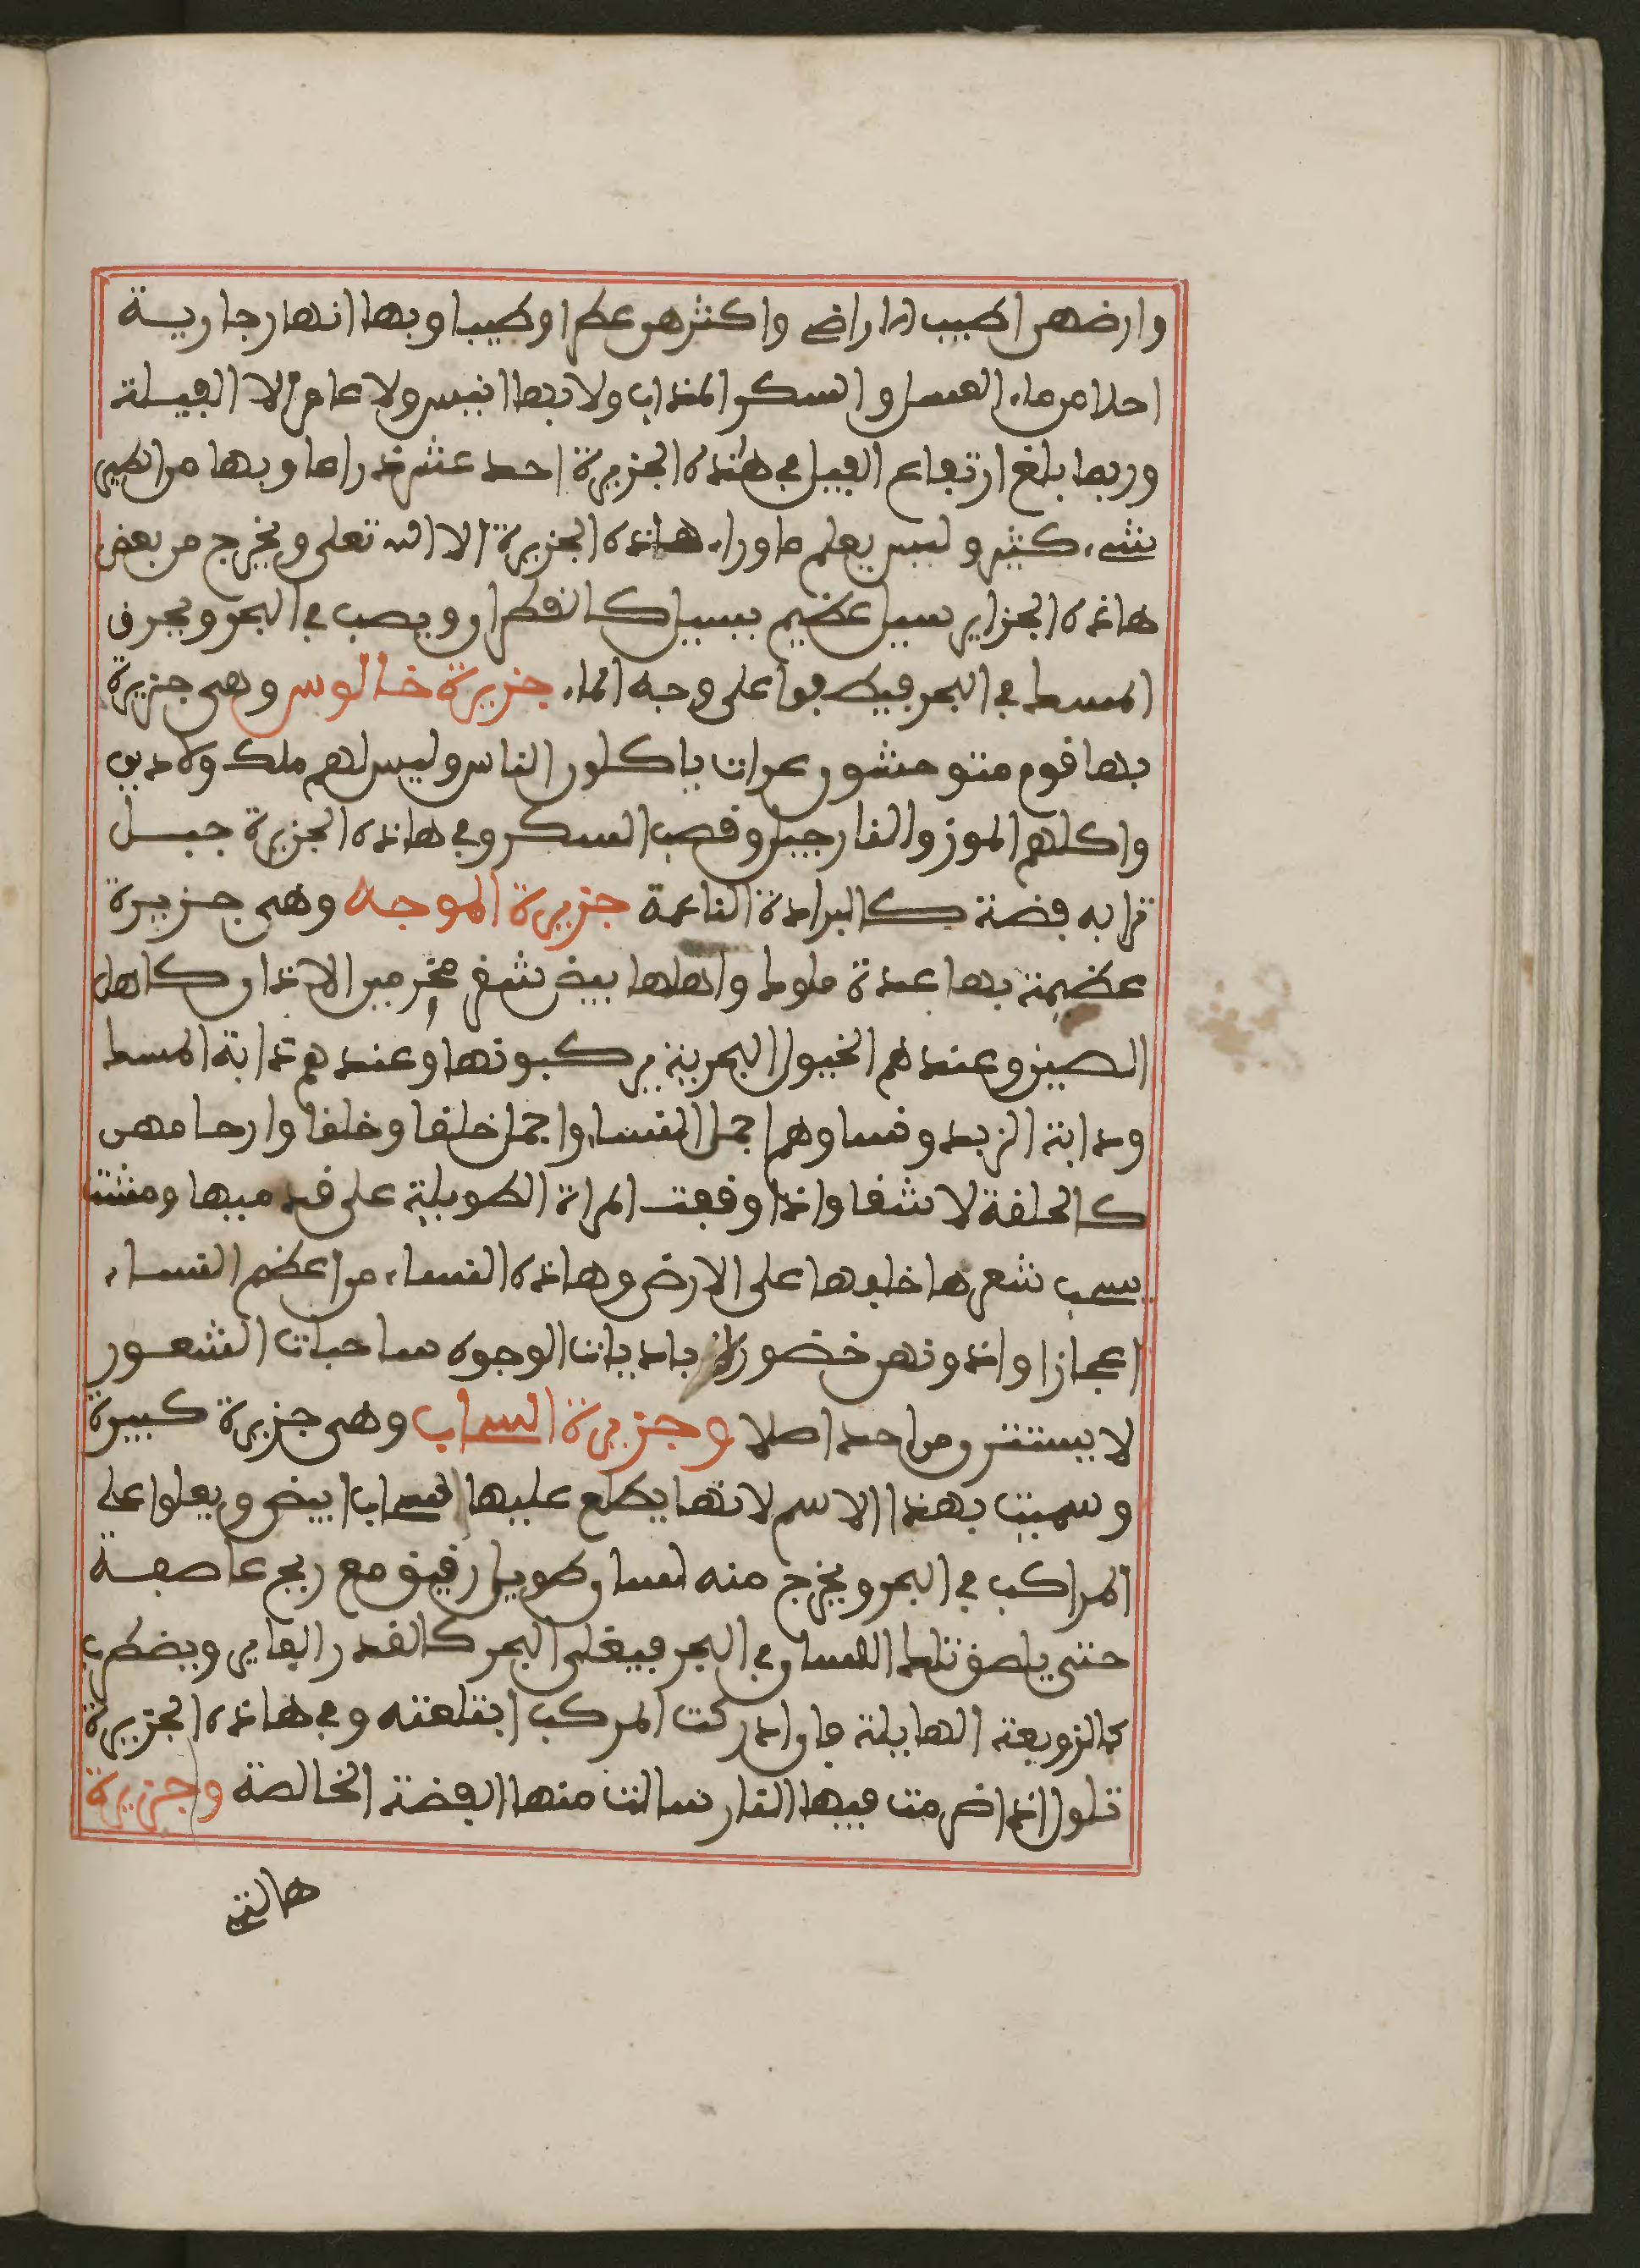 وارضهن اطيب الاراضى واكثرهن عطرا وطيبا وبها انهار جارية
احلا من ماء العسل والسكر المذاب ولا بها انيس ولا عامر الا الفيلة
وربما بلغ ارتفاع الفيل في هذه الجزيرة احد عشر ذراعا وبها من الطير
شىء كثير وليس يعلم ما وراء هاذه الجزيرة الا الله تعلى ويخرج من بعض
هاذه الجزاير سيل عظيم يسيل كالقطران ويصب في البحر ويحرق
المسط في البحر فيطفوا على وجه الماء جزيرة خالوس وهى جزيرة
بها قوم متوحشون عرات ياكلون الناس وليس لهم ملك ولا دين
واكلهم الموز والنارجيل وقصب السكر وفي هاذه الجزيرة جبل
ترابه فضة كالبرادة الناعمة جزيرة الموجه وهى جزيرة
عظيمة بها عدة ملوك واهلها بيض شقر مخرمين الاذان كاهل
الصين وعندهم الخيول البحرية يركبونها وعندهم دابة المسك
ودابة الزبد ونساوهم اجمل النساء واجمل خلقا وخلقا وارحامهن
كالحلقة لا شقا واذا وقفت المراة الطويلة على قدميها ومشت
يسحب شعرها خلفها على الارض وهاذه النساء من اعظم النساء
اعجازا واندونهن خضورا باديات الوجوه ساحبات الشعور
لا يستترون من احد اصلا وجزيرة السحاب وهى جزيرة كبيرة
وسميت بهذا الاسم لانها يطلع عليها السحاب ابيض ويعلوا على
المراكب في البحر ويخرج منه لسان طويل رقيق مع ريح عاصفة
حتى يلصق تلك اللسان في البحر فيغلى البحر كالقدر الفاير ويضطرب
كالزوبعة الهايلة فان ادركت المركب ابتلعته وفي هاذه الجزيرة
تلول اذا ضرمت فيها النار سالت منها الفضة الخالصة وجزيرة